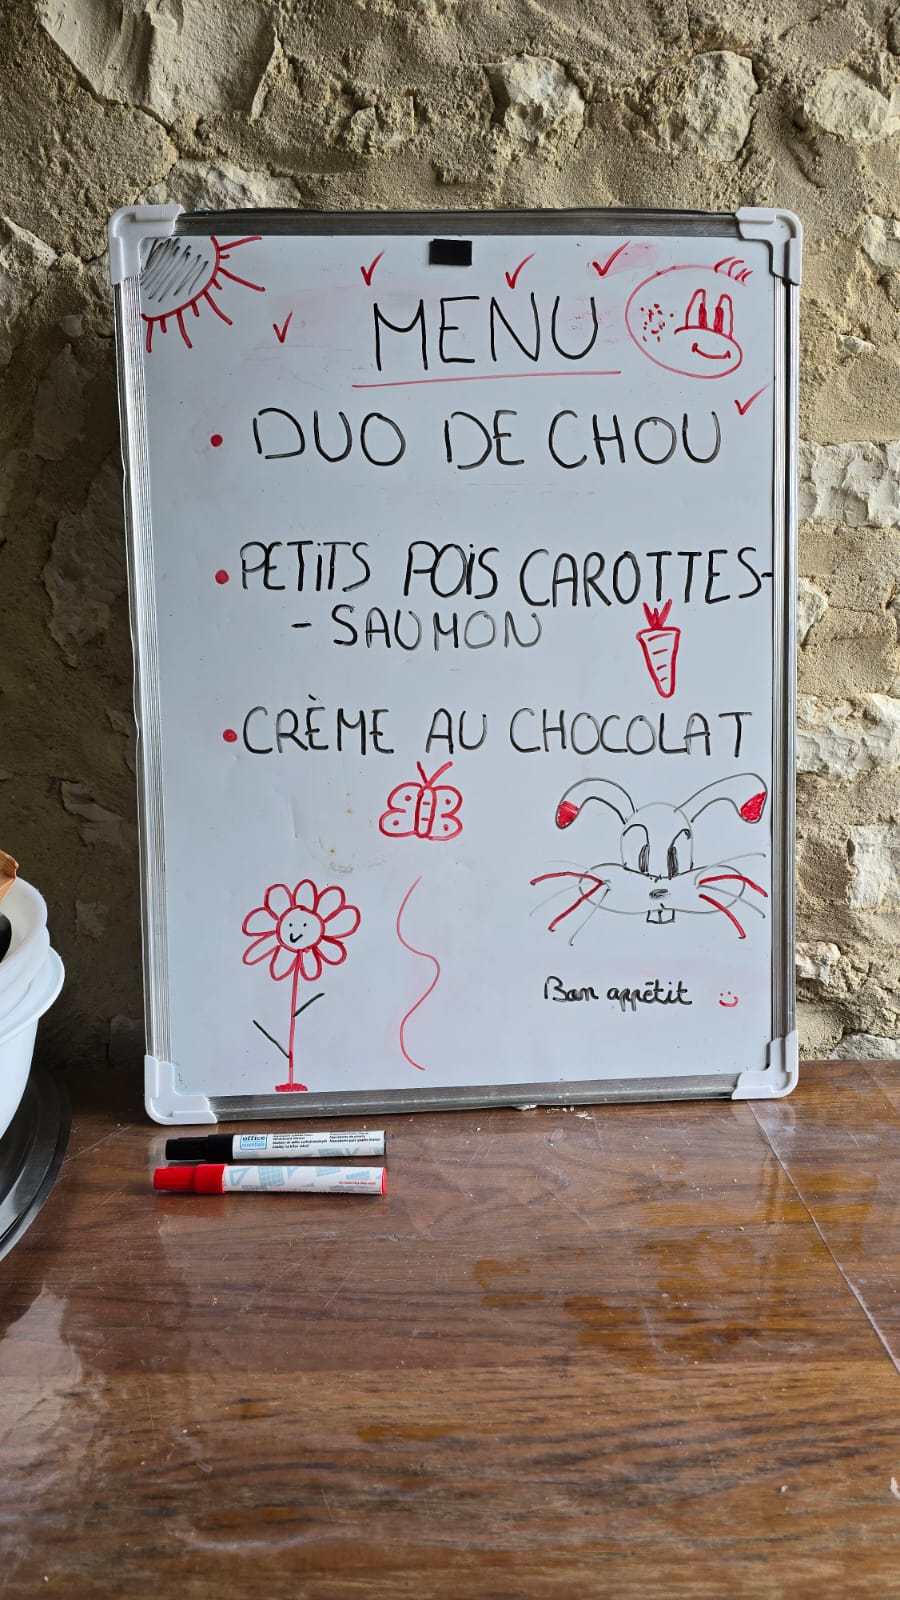 MENU
• DUO DE CHOU
• PETITS POIS CAROTTES-
- SAUMON
• CRÈME AU CHOCOLAT
Bon appétit
office